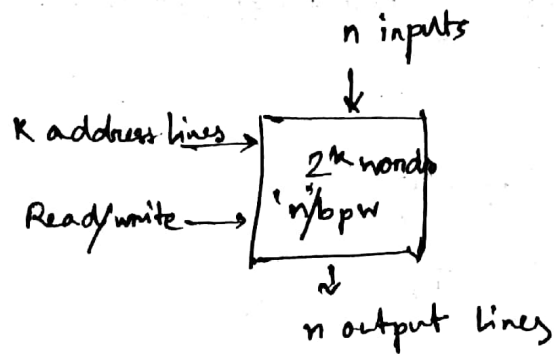 n inputs
K address lines
2^k words
'n' bpw
Read/write
n output lines